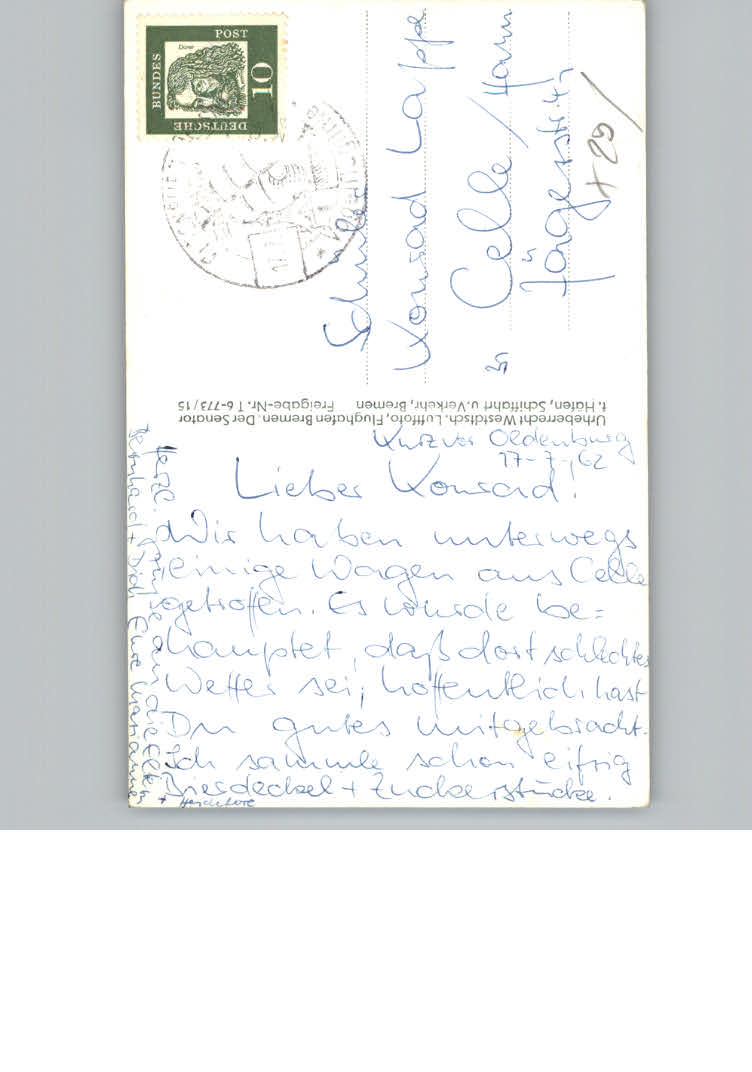 Kurz vor Oldenburg
17-7-,62
Lieber Konrad!
Wir haben unterwegs
einige Wagen aus Celle
getroffen. Es wurde be=
hauptet, daß dort schlechtes
Wetter sei; hoffentlich hast
Du gutes mitgebracht.
Ich sammle schon eifrig
Bierdeckel + Zuckerstücke.
Herzl. Grüße an die Eltern
+ Dich Eure Marianne
+ Heidelore
Schüler
Konrad Lappe
Celle / Hann
Jägerstr.
+ 29
Urheberrecht Westdtsch. Luftfoto, Flughafen Bremen. Der Senator
f. Häfen, Schiffahrt u. Verkehr, Bremen Freigabe-Nr. T 6-773/15
DEUTSCHE
BUNDES
POST
10
Dürer